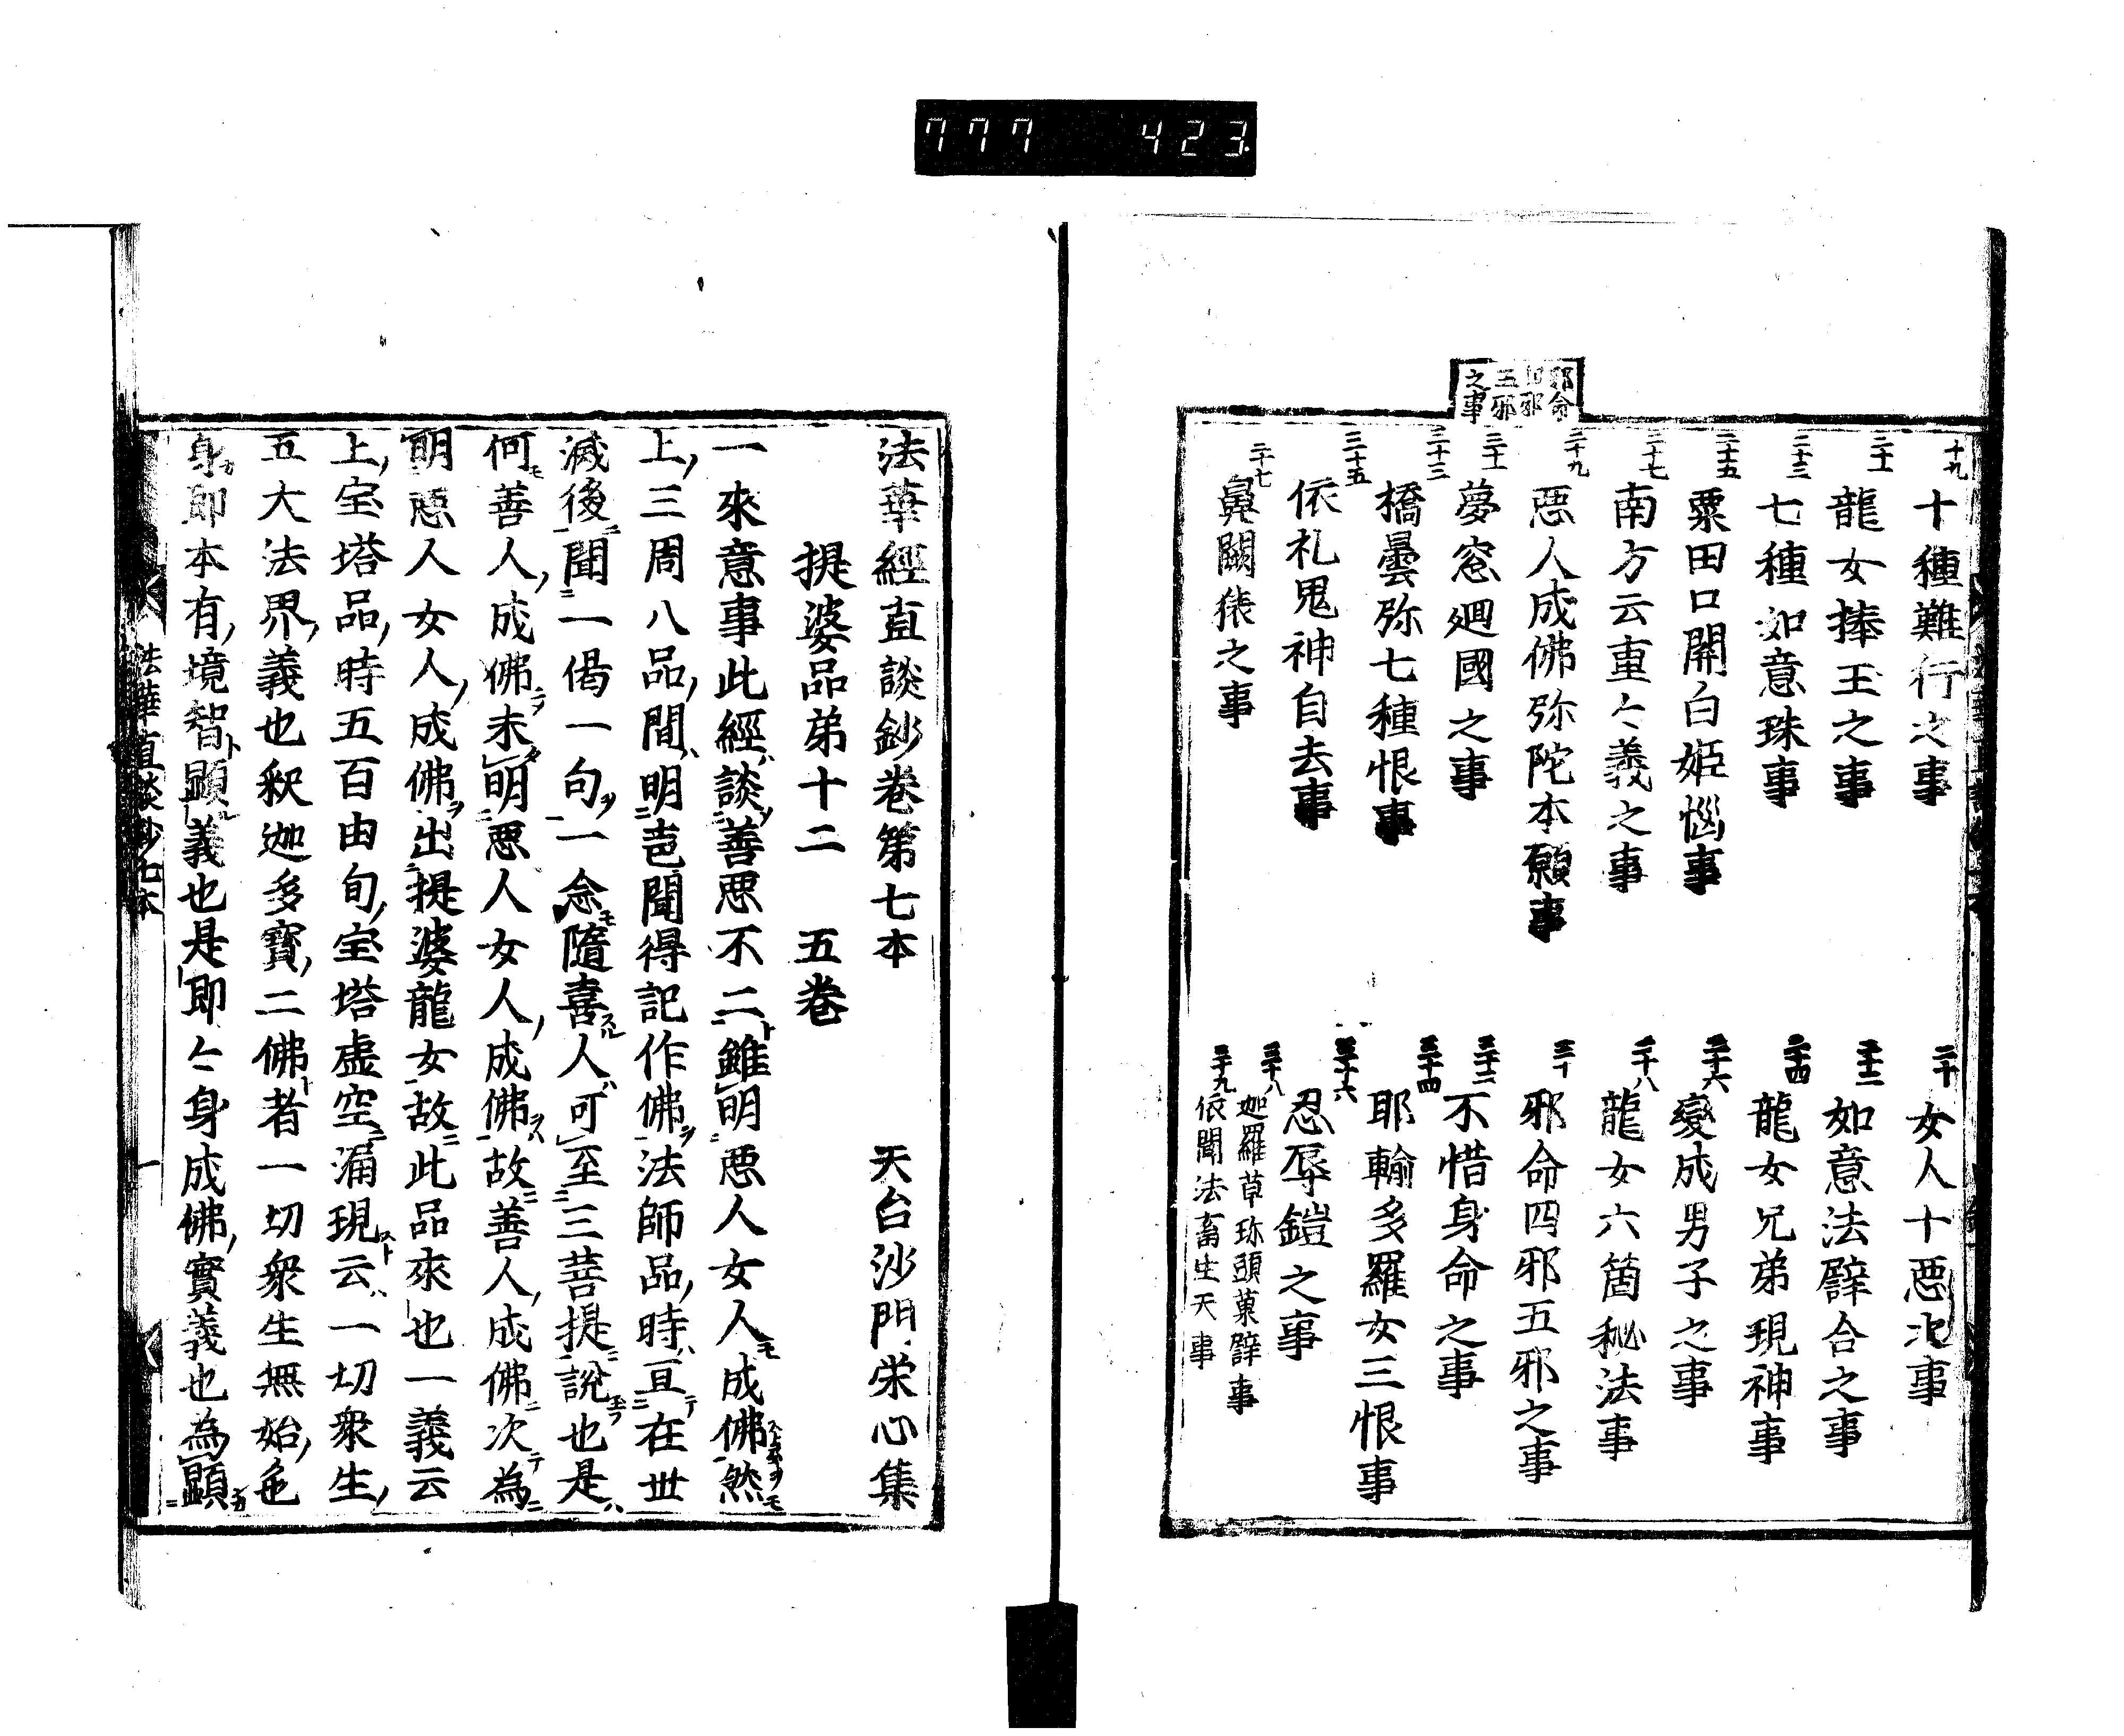 777 423
邪命
四邪
五邪
之事
十九 十種難行之事
二十 女人十悪比事
二十一 龍女捧玉之事
二十二 如意法譬合之事
二十三 七種如意珠事
二十四 龍女兄弟現神事
二十五 粟田口開白姫惱事
二十六 變成男子之事
二十七 南方云重〻義之事
二十八 龍女六箇秘法事
二十九 悪人成佛弥陀本願事
三十 邪命四邪五邪之事
三十一 夢窓廻國之事
三十二 不惜身命之事
三十三 橋曇弥七種恨事
三十四 耶輸多羅女三恨事
三十五 依礼鬼神自去事
三十六 忍辱鎧之事
三十七 鼻闕猿之事
三十八 如羅草珎頭菓譬事
三十九 依聞法畜生天事
法華經直談鈔卷第七本 天台沙門栄心集
提婆品弟十二 五巻
一來意事此經談善悪不二雖明悪人女人成佛然
上三周八品間明芭聞得記作佛法師品時亘在世
滅後聞一偈一句一念隨喜人可至三菩提說也是
何善人成佛未明悪人女人成佛故善人成佛次為
明悪人女人成佛出提婆龍女故此品來也一義云
上宝塔品時五百由旬宝塔虚空涌現云一切衆生
五大法界義也釈迦多寳二佛者一切衆生無始色
身即本有境智顕義也是即〻身成佛實義也為顕
法華直談鈔七本 一